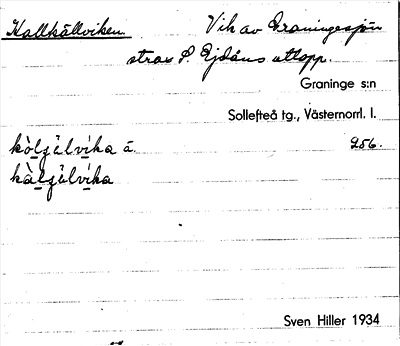 Kallkällviken. Vik av Graningesjön
strax S. Ejdåns utlopp.
Graninge s:n
Sollefteå tg., Västernorrl. l.
kòlʒälvika å 256.
kàlʒälvika
Sven Hiller 1934